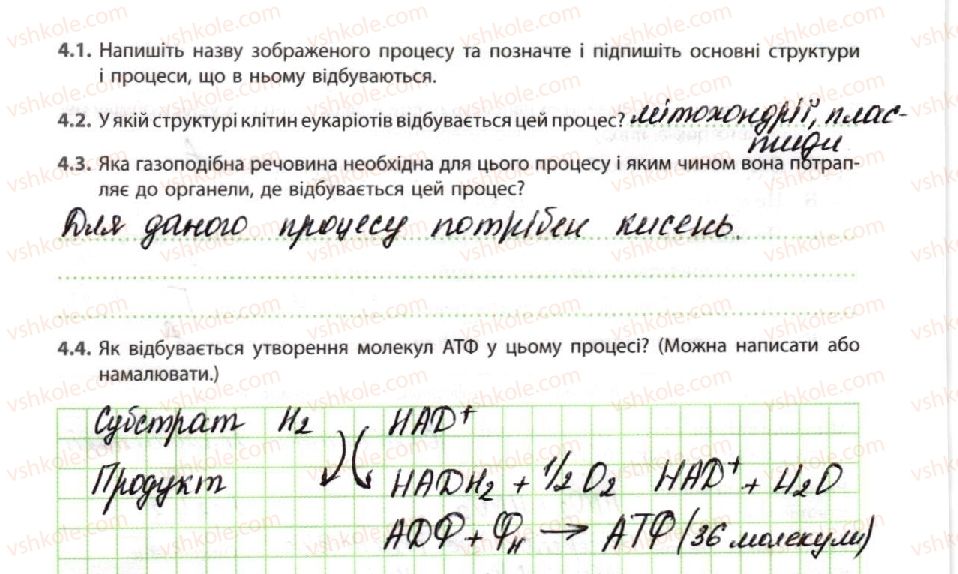 4.1. Напишіть назву зображеного процесу та позначте і підпишіть основні структури
і процеси, що в ньому відбуваються.
4.2. У якій структурі клітин еукаріотів відбувається цей процес? мітохондрії, плас-
тиди
4.3. Яка газоподібна речовина необхідна для цього процесу і яким чином вона потрап-
ляє до органели, де відбувається цей процес?
Для даного процесу потрібен кисень.
4.4. Як відбувається утворення молекул АТФ у цьому процесі? (Можна написати або
намалювати.)
Субстрат H₂ НАD⁺
Продукт НАDН₂ + 1/2 O₂ НАD⁺ + H₂O
АДФ + Фн → АТФ (36 молекули)